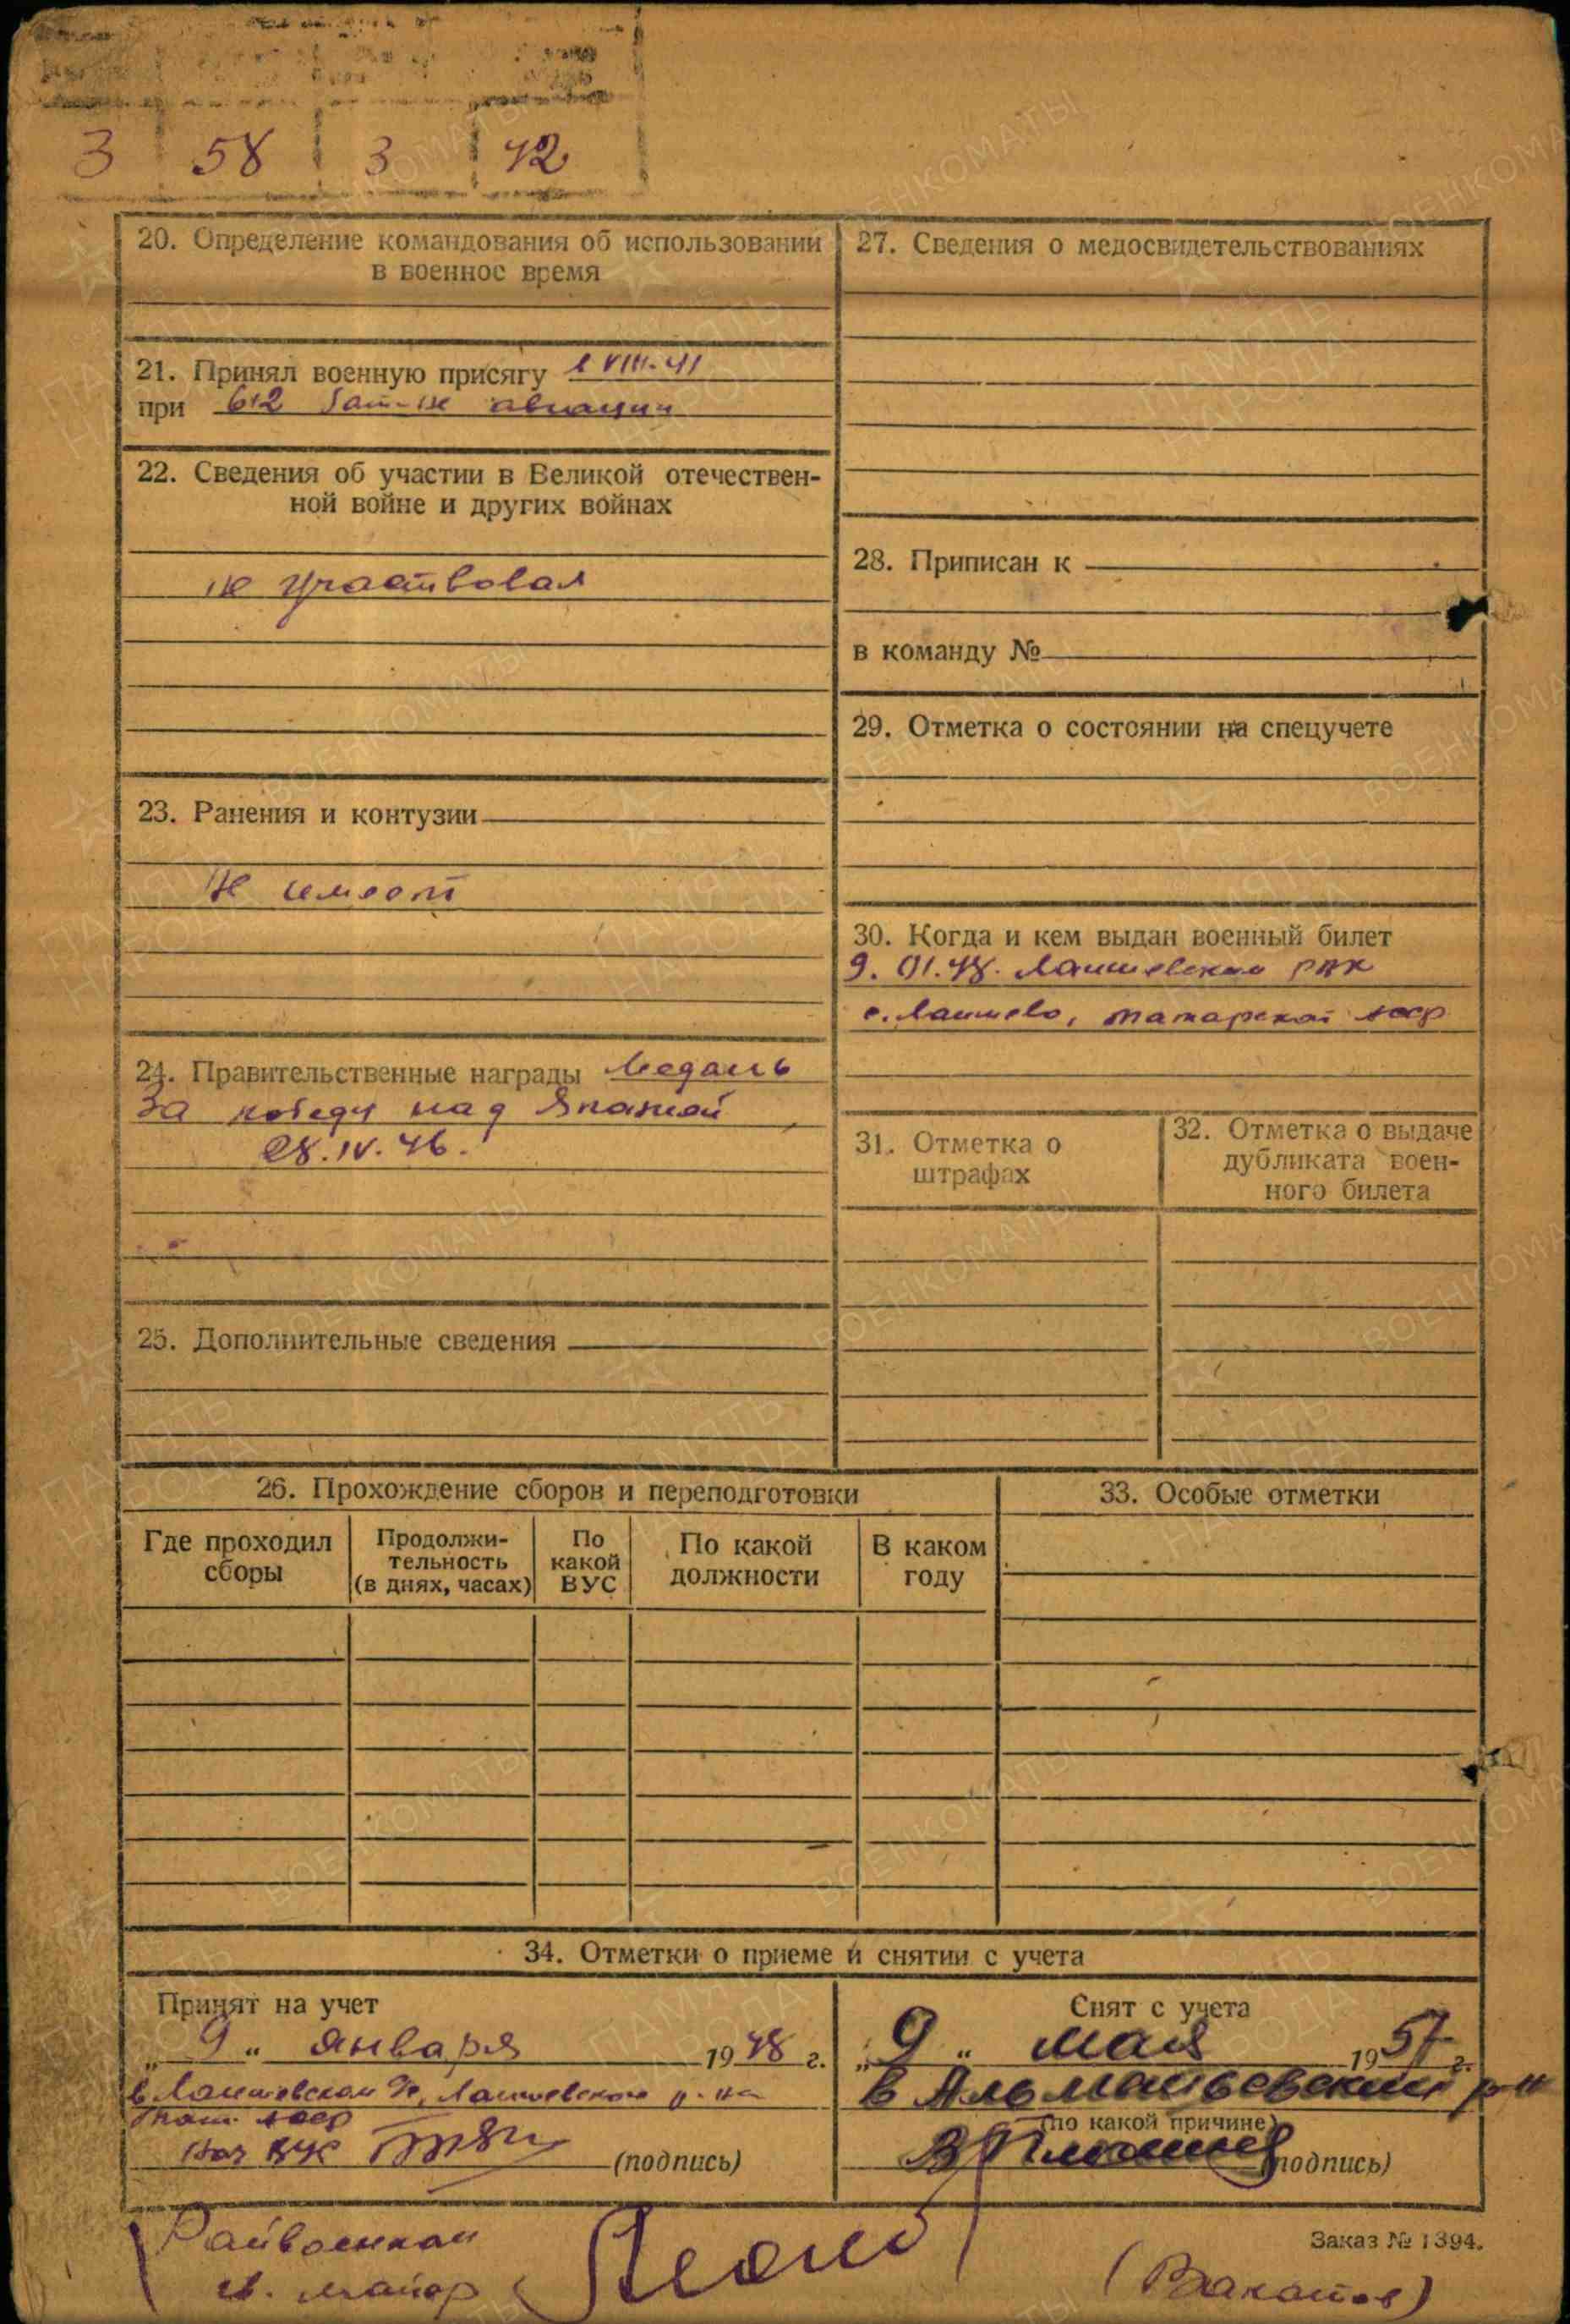 3 58 3 42
20. Определение командования об использовании
в военное время
21. Принял военную присягу 1 VIII-41
при 612 бат-не авиации
22. Сведения об участии в Великой отечествен-
ной войне и других войнах
не участвовал
23. Ранения и контузии
Не имеет
24. Правительственные награды Медаль
За победу над Японией
28.IV.46.
25. Дополнительные сведения
27. Сведения о медосвидетельствованиях
28. Приписан к
в команду №
29. Отметка о состоянии на спецучете
30. Когда и кем выдан военный билет
9.01.48. Лаишевским РВК
с. Лаишево, татарской асср
31. Отметка о
штрафах
32. Отметка о выдаче
дубликата воен-
ного билета
26. Прохождение сборов и переподготовки
Где проходил
сборы
Продолжи-
тельность
(в днях, часах)
По
какой
ВУС
По какой
должности
В каком
году
33. Особые отметки
34. Отметки о приеме и снятии с учета
Принят на учет
„ 9 “ января 1948 г.
в Лаишевском Лаишевского р-на
тат. асср
Нач ВУС (подпись)
Снят с учета
„ 9 “ мая 1957 г.
в Альметьевский р-н
(по какой причине)
(подпись)
Райвоенком
гв. майор
Заказ № 1394.
ПАМЯТЬ НАРОДА
ВОЕНКОМАТЫ